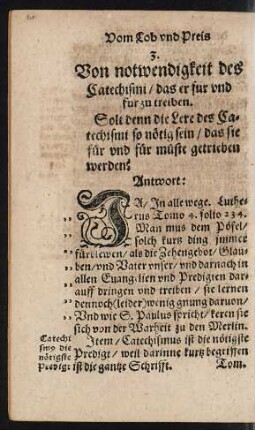 Vom Lob vnd Preis
3.
Von notwendigkeit des
Catechismi / das er fur vnd
fur zu treiben.
Solt denn die Lere des Ca-
techismi so nötig sein / das sie
für vnd für müste getrieben
werden?
Antwort:
JA / In allewege. Luthe-
rus Tomo 4. folio 234.
Man mus dem Pöfel
solch kurtz ding jmmer
fürblewen / als die Zehengebot / Glau-
ben / vnd Vater vnser / vnd darnach in
allen Euangelien vnd Predigten dar-
auff dringen vnd treiben / sie lernen
dennoch (leider) wenig gnung daruon /
Vnd wie S. Paulus spricht / keren sie
sich von der Warheit zu den Merlin.
Item / Catechismus ist die nötigste
Predigt / weil darinne kurtz begriffen
ist die gantze Schrifft. Tom.
Catechi
smus die
nötigste
Predigt